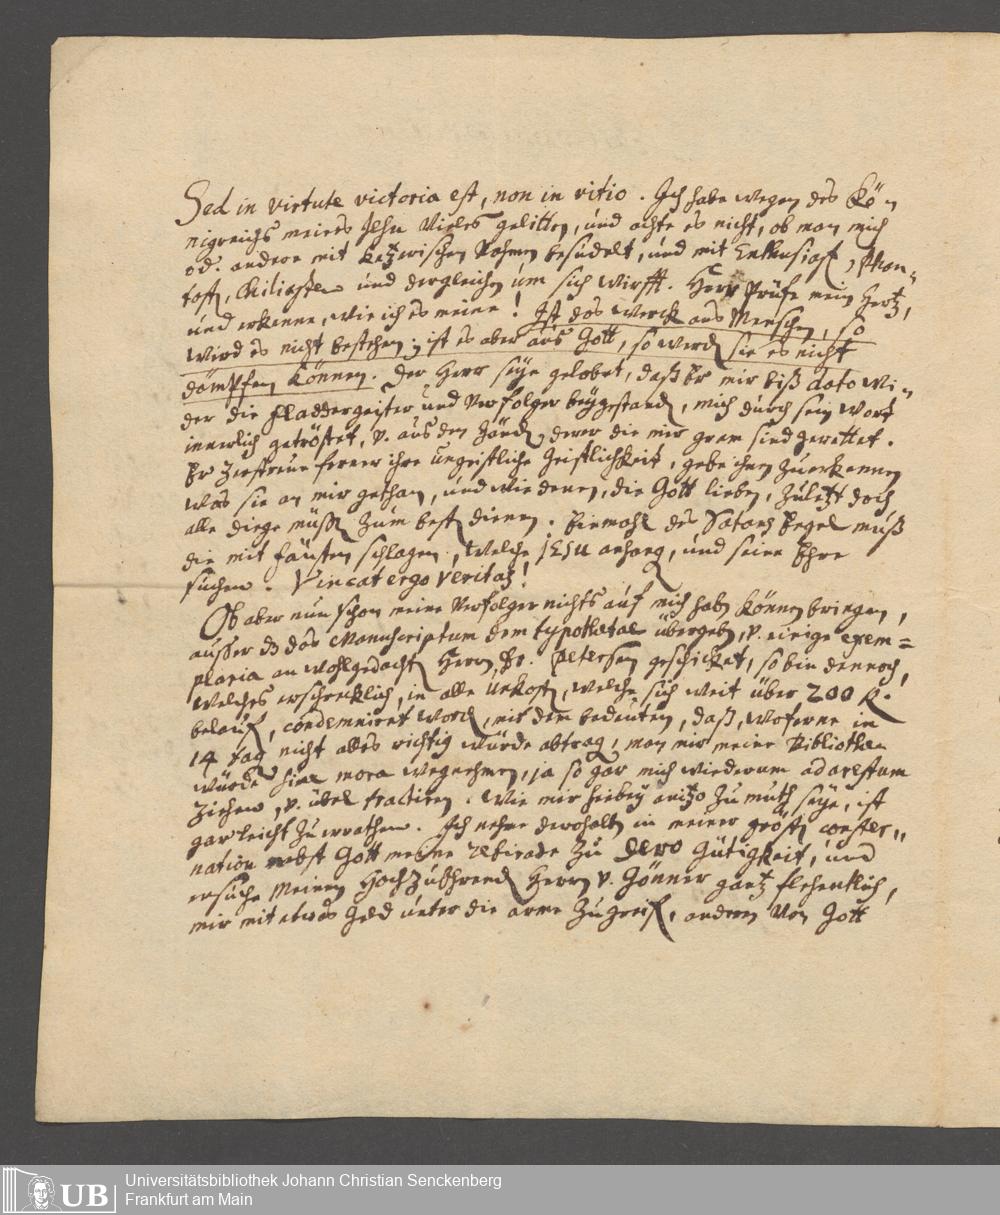 Sed in virtute victoria est, non in vitio. Ich habe wegen des Kö-
nigreichs meines Jesu Vieles gelitten, und achte es nicht, ob man mich
od. andere mit Ketzerischen Nahmen besudelt, und mit Enthusiast, Phan-
tast, Chiliasten und dergleichen üm sich wirfft. Herr Prüfe mein Hertz,
und erkenne, wie ich es meine! Ist das Werck aus Menschen, so
wird es nicht bestehen; ist es aber aus Gott, so werden sie es nicht
dämpfen können. Der Herr seye gelobet, daß Er mir biß dato wi-
der die Fladdergeister und Verfolger beygestanden, mich durch sein Wort
innerlich getröstet, v. aus den Händen, derer die mir gram sind gerettet.
Er zerstreue ferner ihre ungeistliche Geistlichkeit, gebe ihnen zuerkennen
was sie an mir gethan, und wie denen, die Gott lieben, zuletzt doch
alle dinge müssen zum besten dienen. Einmahl des Satans Engel muß
die mit fäusten schlagen, welche JESU anhang, und seine Ehre
suchen. Vincat ergo Veritas!
Ob aber nun schon meine Verfolger nichts auf mich haben können bringen,
ausser dz das Manuscriptum dem typothetae übergeben, v. einige exem-
plaria an wohlgedachten Herrn Dr. Petersen geschicket, so bin dennoch,
welches erschrecklich, in alle Unkosten, welche sich weit über 200 f.
belauffen, condemniret worden, mit dem bedeuten, daß, woferne in
14 tag nicht alles richtig würde abtrag, man mir meine Bibliothec
würde sine mora wegnehmen, ja so gar mich wiederum ad arestum
ziehen, v. übel tractiren. Wie mir hiebey anitzo zu muth seye, ist
gar leicht zu errathen. Ich nehme derohalben in meiner größten conster-
nation nebst Gott meine retirade zu Dero Gütigkeit, und
ersuche Meinen HochzuEhrenden Herrn v. Gönner gantz flehentlich,
mir mit etwas Geld unter die arme zu greiffen, anderen von Gott
UB Universitätsbibliothek Johann Christian Senckenberg
Frankfurt am Main